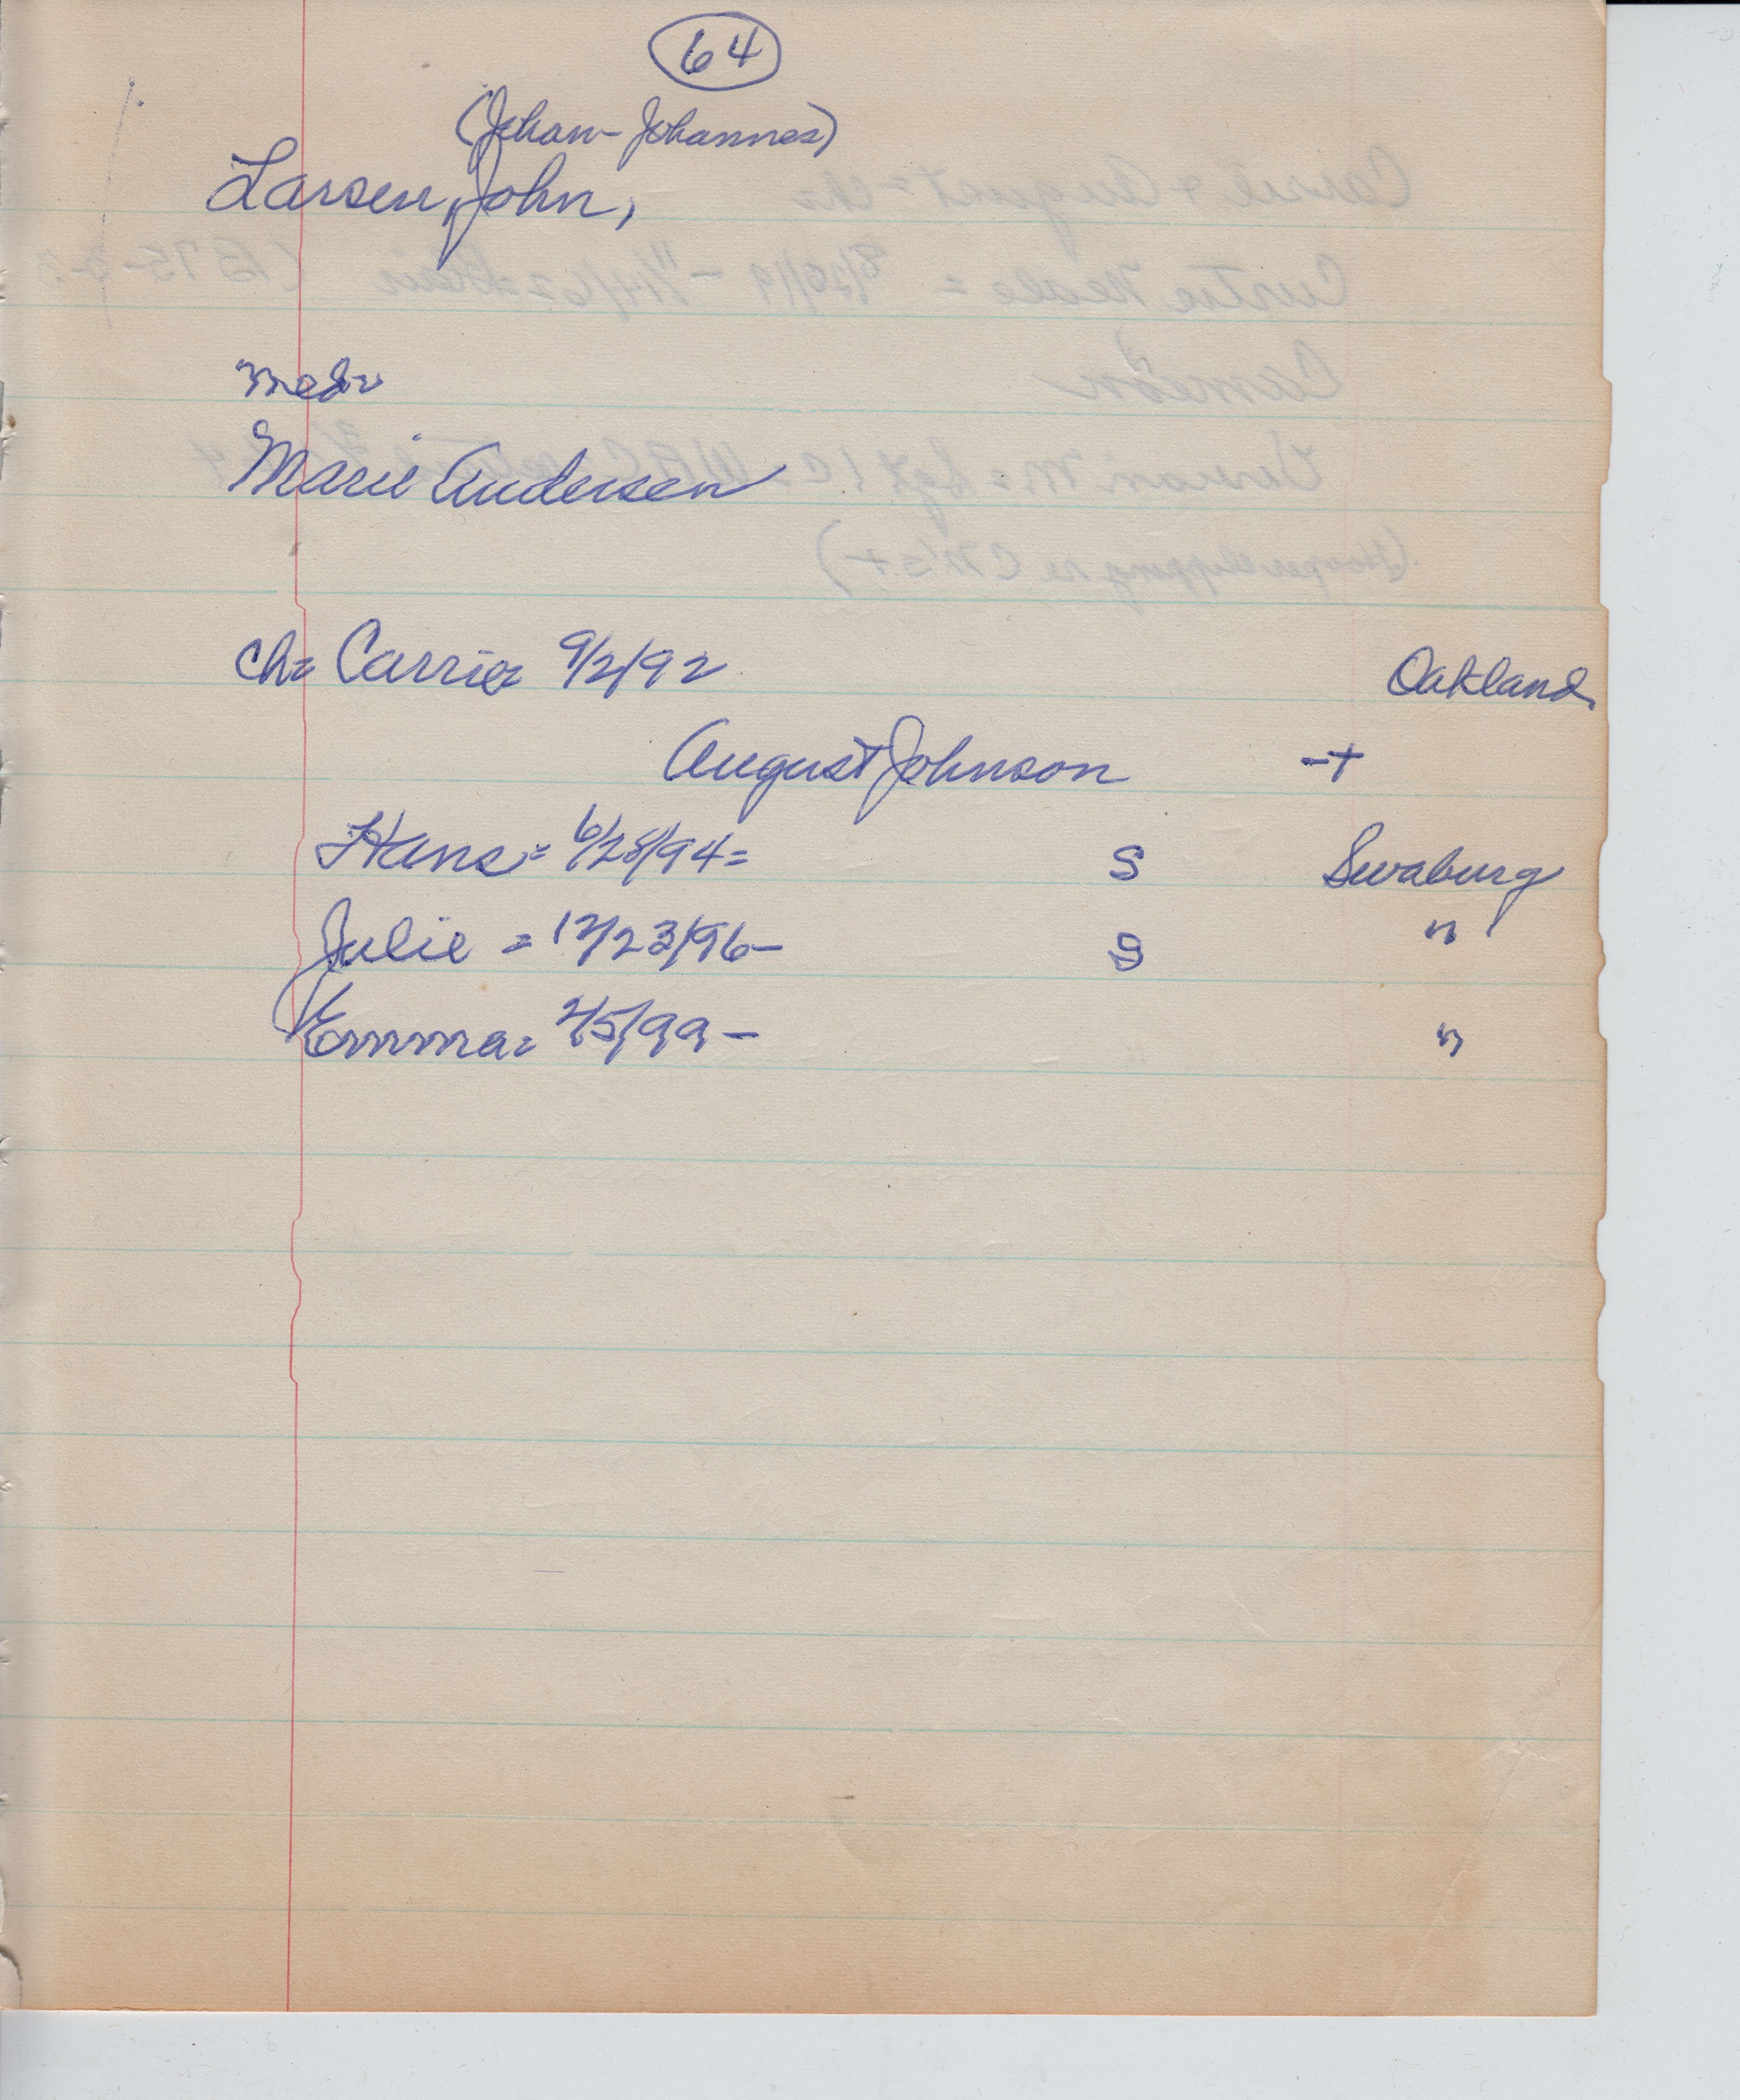 64
(Johan - Johannes)
Larsen, John,
Med=
Marie Andersen
ch= Carrie= 9/2/92 Oakland
August Johnson -+
Hans= 6/28/94= S Swaburg
Julie = 12/23/96- S "
Emma= 2/5/99- "